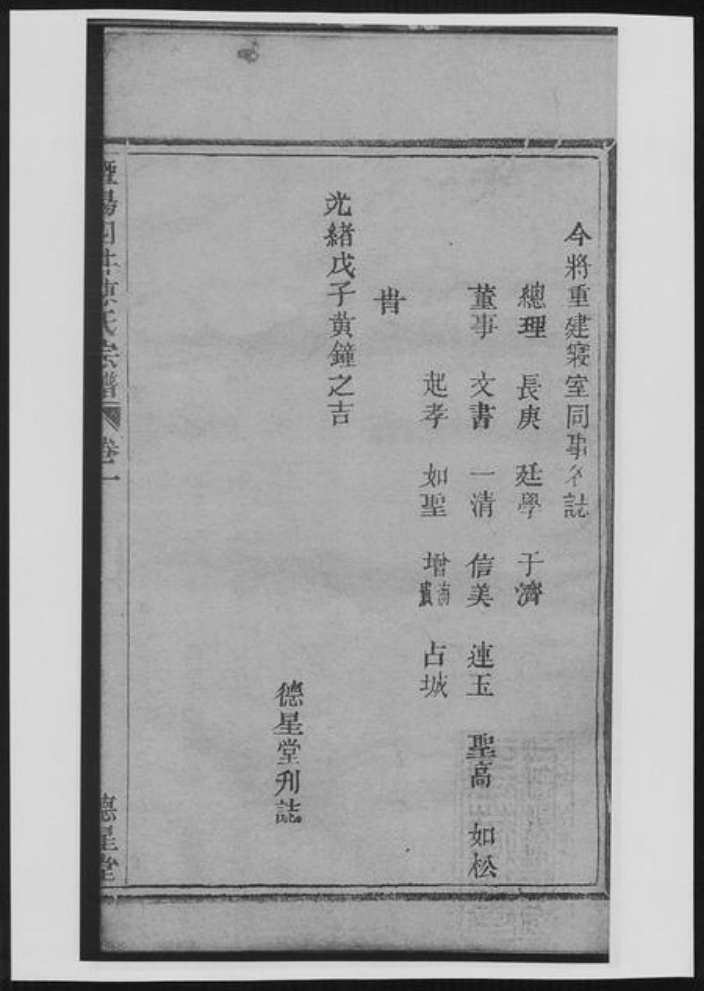 今將重建寢室同事名誌
總理 長庚 廷學 于濟
董事 文書 一清 信美 連玉 聖高 如松
起孝 如聖 增海 占城
旹
光緒戊子黃鐘之吉
德星堂刋誌
暨陽 陳氏宗譜 卷一
德星堂